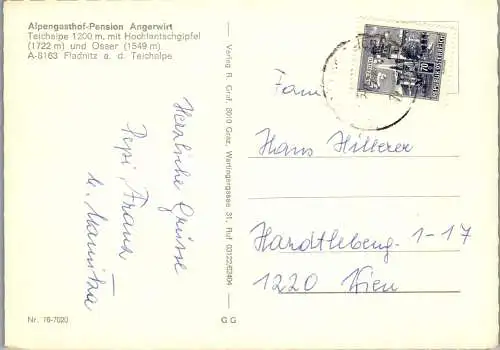 Alpengasthof-Pension Angerwirt
Teichalpe 1200 m, mit Hochlantschgipfel
(1722 m) und Osser (1549 m)
A-8163 Fladnitz a. d. Teichalpe
Herzliche Grüsse
Pepi, Franz
u. Maritza
Nr. 76-7020
Verlag R. Graf, 8010 Graz, Wartingergasse 31, Ruf 03122/62404
G G
Fam.
Hans Hitterer
Hardtlebeng. 1-17
1220 Wien